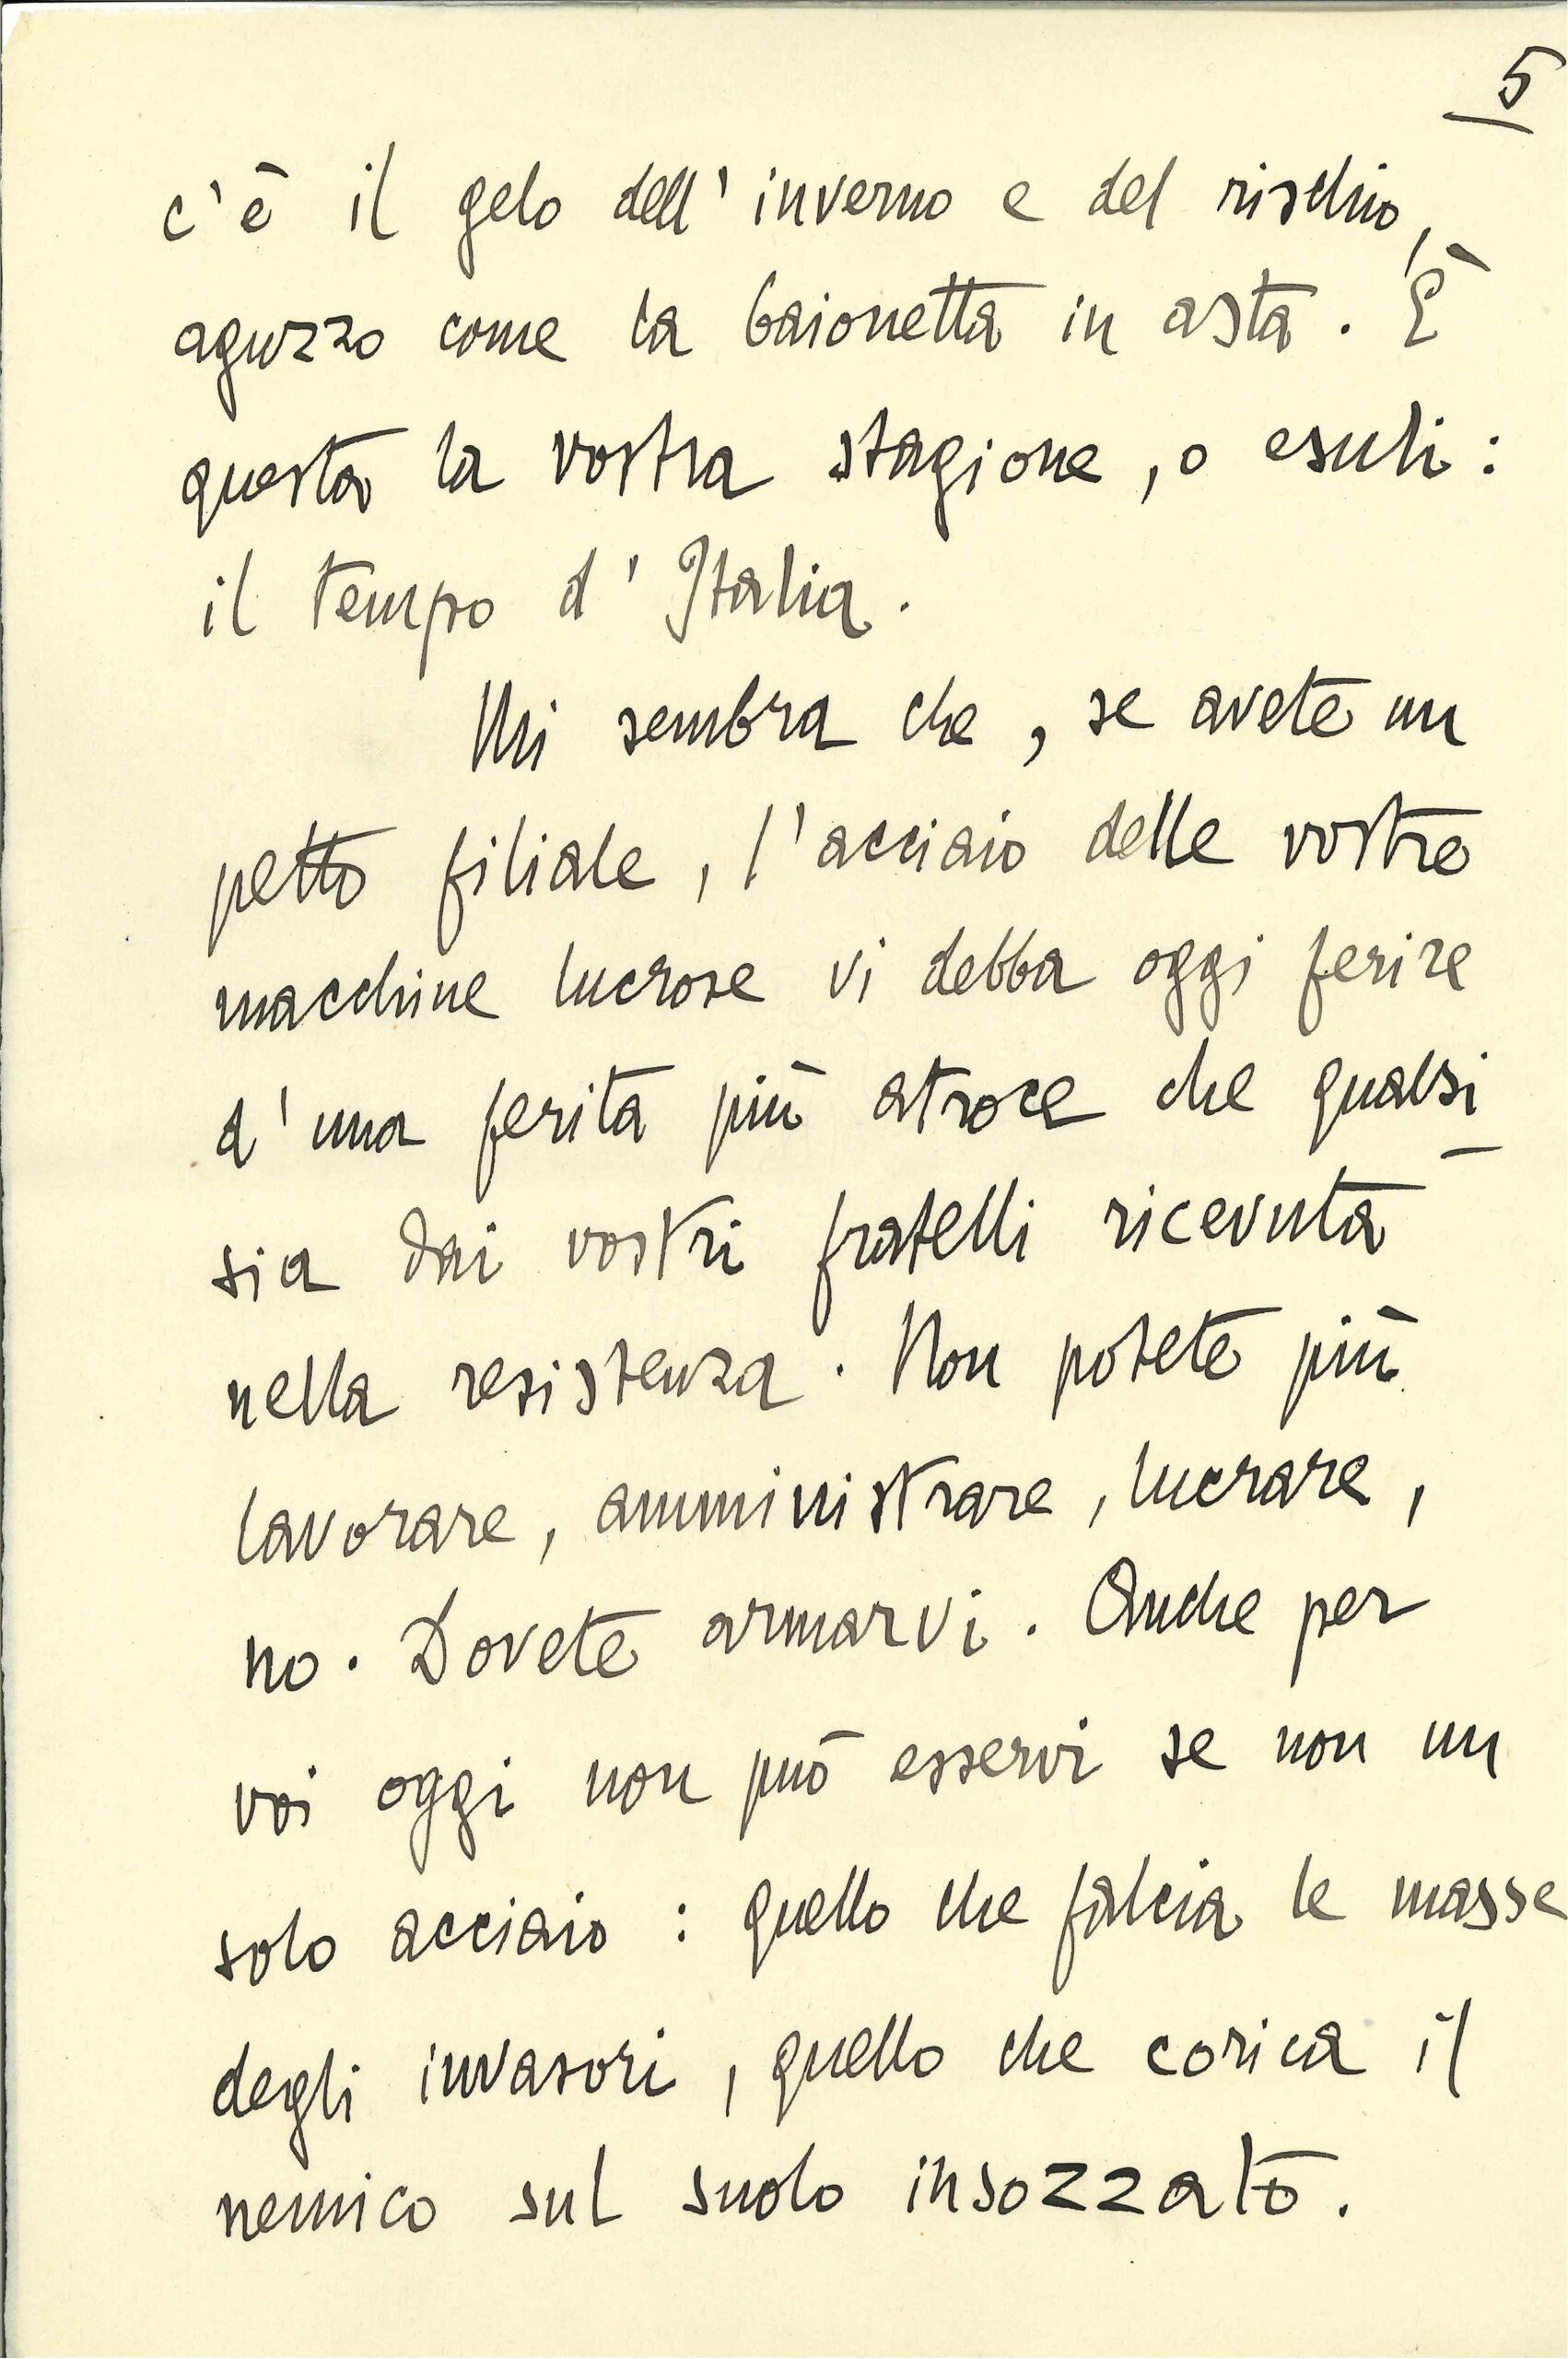 5
c'è il gelo dell'inverno e del rischio,
aguzzo come la baionetta in asta. È
questa la vostra stagione, o esuli:
il tempo d'Italia.
Mi sembra che, se avete un
petto filiale, l'acciaio delle vostre
macchine lucrose vi debba oggi ferire
d'una ferita più atroce che qualsi-
sia dai vostri fratelli ricevuta
nella resistenza. Non potete più
lavorare, amministrare, lucrare,
no. Dovete armarvi. Anche per
voi oggi non può esservi se non un
solo acciaio: quello che falcia le masse
degli invasori, quello che corica il
nemico sul suolo insozzato.